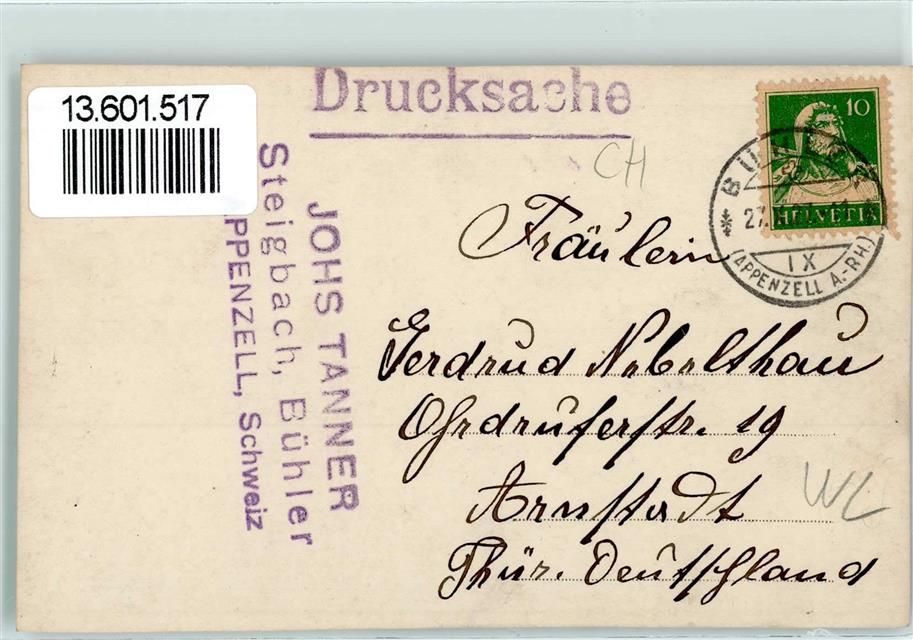 13.601.517
Drucksache
CH
10
HELVETIA
27.
IX
(APPENZELL A.-RH.)
JOHS TANNER
Steigbach, Bühler
PPENZELL, Schweiz
Fräulein
Gerdrud Nebelthau
Ohrdruferstr. 19
Arnstadt
WL
Thür. Deutschland